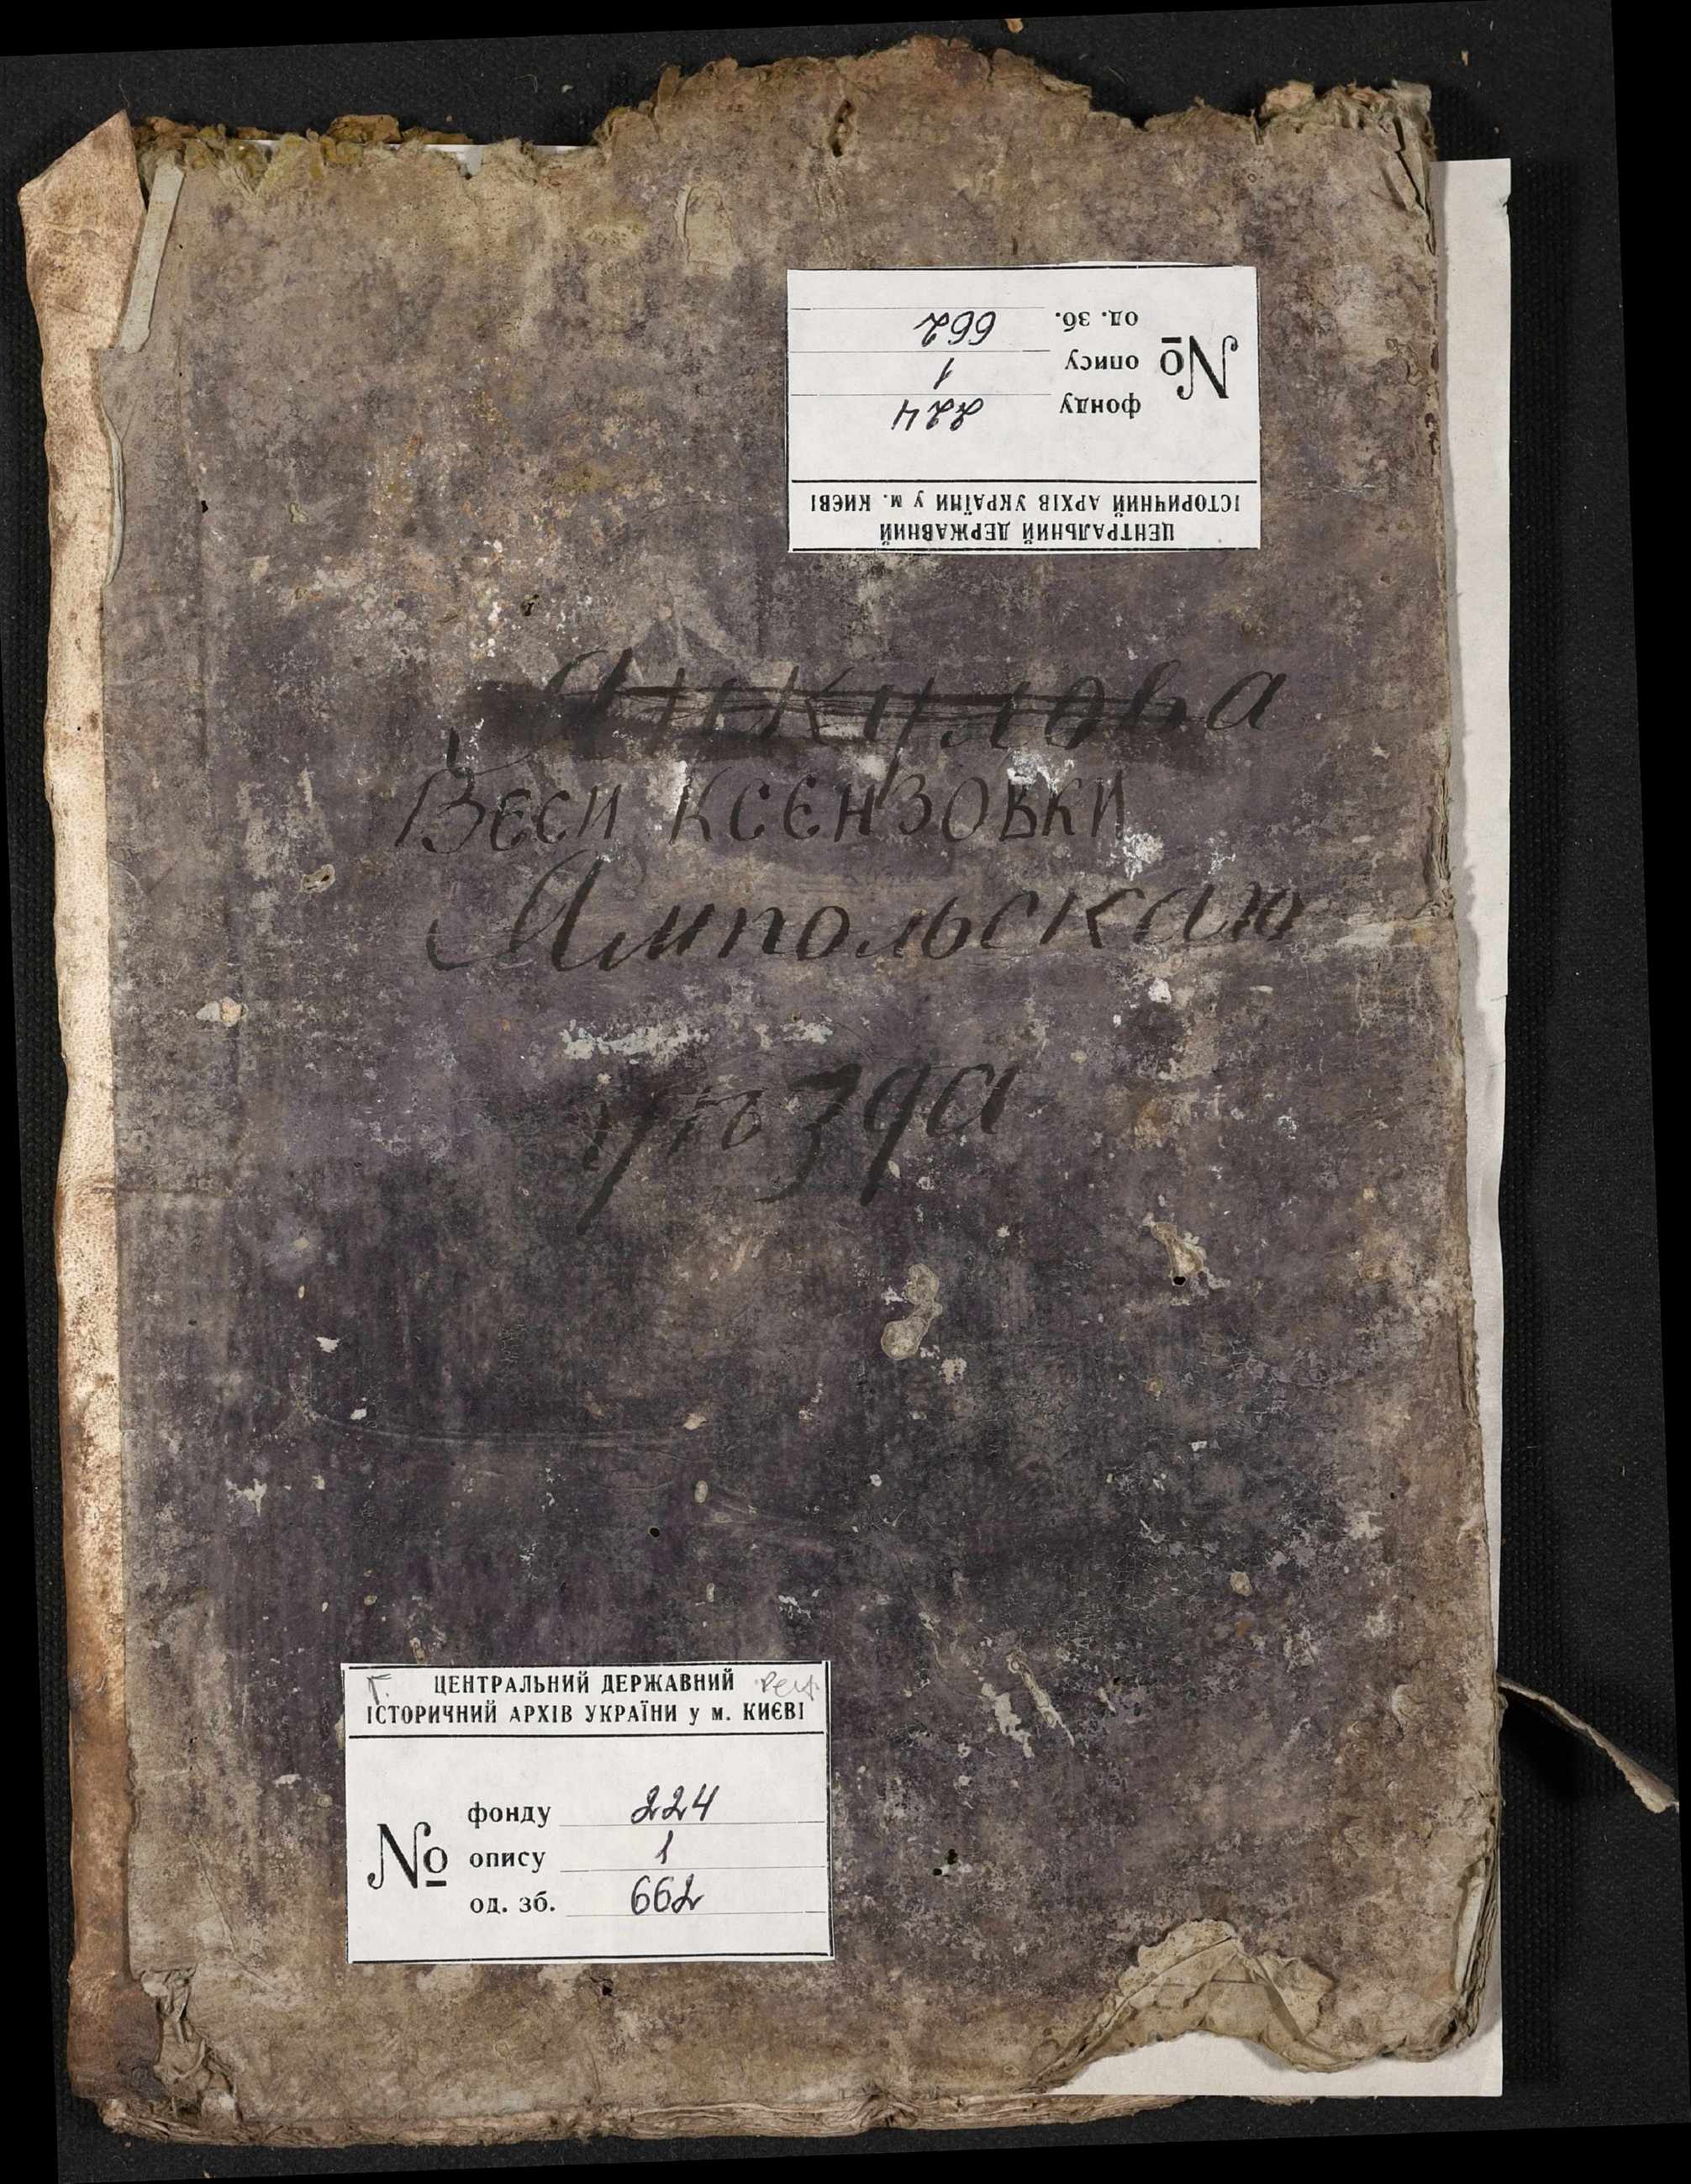 ЦЕНТРАЛЬНИЙ ДЕРЖАВНИЙ
ІСТОРИЧНИЙ АРХІВ УКРАЇНИ у м. КИЄВІ
№
фонду 224
опису 1
од. зб. 662
Вєси Ксєнзовки
Ямпольскаго
уѣзда
Г. ЦЕНТРАЛЬНИЙ ДЕРЖАВНИЙ
ІСТОРИЧНИЙ АРХІВ УКРАЇНИ у м. КИЄВІ
№
фонду 224
опису 1
од. зб. 662